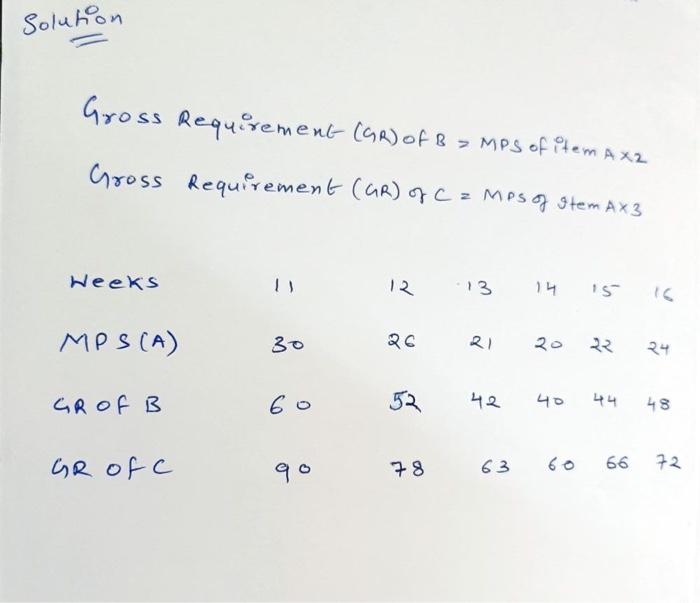 Solution
Gross Requirement (GR) of B = MPS of item A x2
Gross Requirement (GR) of C = MPS of Item A x3
Weeks 11 12 13 14 15 16
MPS (A) 30 26 21 20 22 24
GR of B 60 52 42 40 44 48
GR of C 90 78 63 60 66 72